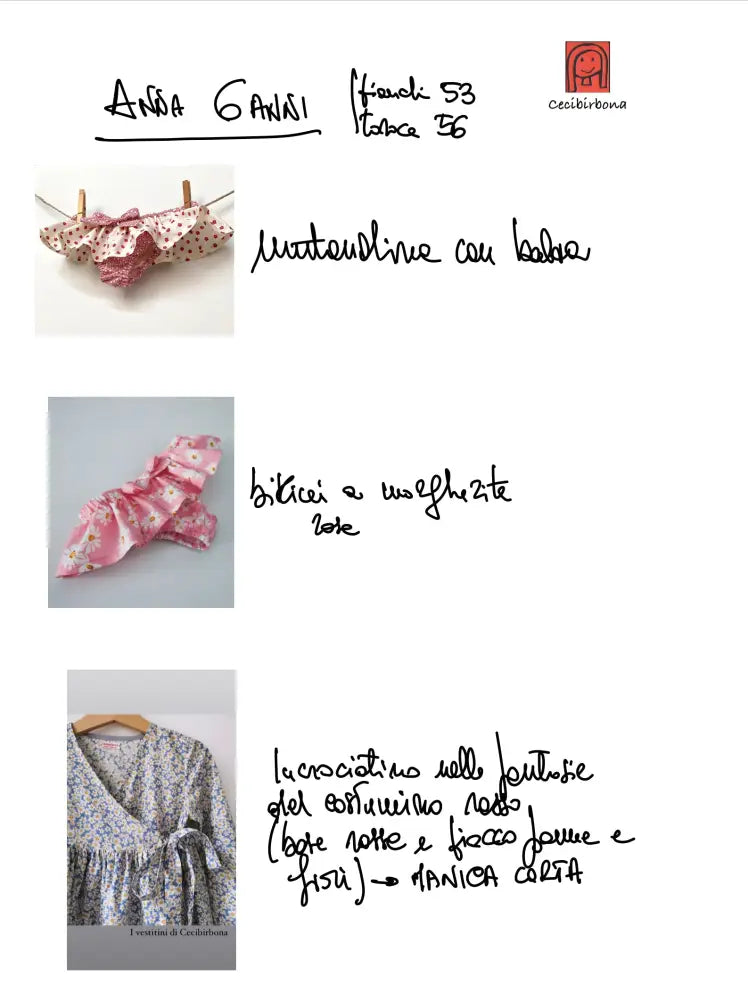 ANNA 6 ANNI
fianchi 53
torace 56
Cecibirbona
mutandina con balza
bikini a margherite
rosa
Incrociatino nella fantasia
del costumino rosso
(base rossa e fiocco panna e
fiori) → MANICA CORTA
I vestitini di Cecibirbona